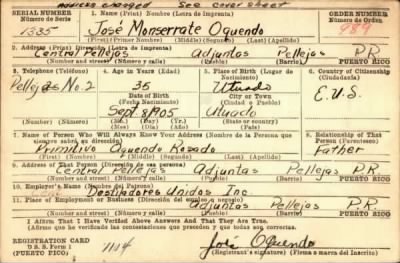 Address changed See cover sheet
SERIAL NUMBER 1. Name (Print) Nombre (Letra de Imprenta) ORDER NUMBER
Número de Serie Número de Orden
1335 José Monserrate Oquendo 989
(First) (Primer Nombre) (Middle) (Segundo Nombre) (Last) (Apellido)
2. Address (Print) Dirección (Letra de Imprenta)
Central Pellejas Adjuntas Pellejas P.R.
(Number and street) (Número y calle) (Town) (Municipio) PUERTO RICO
3. Telephone (Teléfono) 4. Age in Years (Edad) 5. Place of Birth (Lugar de Nacimiento) 6. Country of Citizenship (Ciudadanía)
Pellejas No. 2 35 Utuado E.U.S.
Date of Birth City or Town
(Fecha Nacimiento) (Ciudad o Pueblo)
Sept. 8 1905 Utuado
(Number) (Núm.) (Mo.) (Mes) (Day) (Día) (Yr.) (Año) State or country (Estado o país)
7. Name of Person Who Will Always Know Your Address (Nombre de la Persona que siempre sabrá su dirección) 8. Relationship of That Person (Parentesco)
Primitivo Oquendo Rosado Father
(First) (Nombre) (Middle) (Segundo) (Last) (Apellido)
9. Address of That Person (Dirección de esa persona)
Central Pellejas Adjuntas Pellejas P.R.
(Number and street) (Número y calle) (Town) (Municipio) PUERTO RICO
10. Employer's Name (Nombre del Patrono)
Destiladores Unidos Inc
11. Place of Employment or Business (Dirección del empleo o negocio)
Adjuntas Pellejas P.R.
(Number and street) (Número y calle) (Town) (Municipio) PUERTO RICO
I Affirm That I Have Verified Above Answers and That They Are True.
Afirmo que he verificado las contestaciones que preceden y que todas son correctas.
REGISTRATION CARD
D S S. Form 1
(PUERTO RICO)
1114 José Oquendo
(Registrant's signature) (Firma a marca del Inscrito)